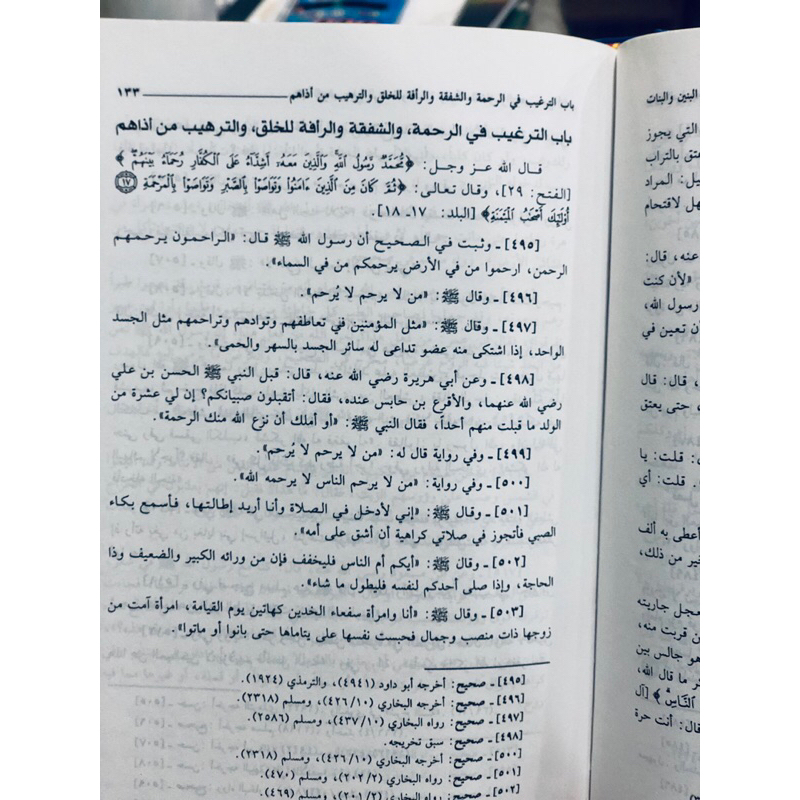 باب الترغيب في الرحمة والشفقة والرأفة للخلق والترهيب من أذاهم ١٣٣
باب الترغيب في الرحمة، والشفقة والرأفة للخلق، والترهيب من أذاهم
قال الله عز وجل: ﴿مُّحَمَّدٌ رَّسُولُ اللَّهِ وَالَّذِينَ مَعَهُ أَشِدَّاءُ عَلَى الْكُفَّارِ رُحَمَاءُ بَيْنَهُمْ﴾
[الفتح: ٢٩]، وقال تعالى: ﴿ثُمَّ كَانَ مِنَ الَّذِينَ ءَامَنُوا وَتَوَاصَوْا بِالصَّبْرِ وَتَوَاصَوْا بِالْمَرْحَمَةِ ١٧
أُوْلَٰئِكَ أَصْحَٰبُ الْمَيْمَنَةِ﴾ [البلد: ١٧- ١٨].
[٤٩٥] ـ وثبت في الصحيح أن رسول الله ﷺ قال: «الراحمون يرحمهم
الرحمن، ارحموا من في الأرض يرحمكم من في السماء».
[٤٩٦] ـ وقال ﷺ: «من لا يرحم لا يُرحم».
[٤٩٧] ـ وقال ﷺ: «مثل المؤمنين في تعاطفهم وتوادهم وتراحمهم مثل الجسد
الواحد، إذا اشتكى منه عضو تداعى له سائر الجسد بالسهر والحمى».
[٤٩٨] ـ وعن أبي هريرة رضي الله عنه، قال: قبل النبي ﷺ الحسن بن علي
رضي الله عنهما، والأقرع بن حابس عنده، فقال: أتقبلون صبيانكم؟ إن لي عشرة من
الولد ما قبلت منهم أحداً، فقال النبي ﷺ: «أو أملك أن نزع الله منك الرحمة».
[٤٩٩] ـ وفي رواية قال له: «من لا يرحم لا يُرحم».
[٥٠٠] ـ وفي رواية: «من لا يرحم الناس لا يرحمه الله».
[٥٠١] ـ وقال ﷺ: «إني لأدخل في الصلاة وأنا أريد إطالتها، فأسمع بكاء
الصبي فأتجوز في صلاتي كراهية أن أشق على أمه».
[٥٠٢] ـ وقال ﷺ: «أيكم أم الناس فليخفف فإن من ورائه الكبير والضعيف وذا
الحاجة، وإذا صلى أحدكم لنفسه فليطول ما شاء».
[٥٠٣] ـ وقال ﷺ: «أنا وامرأة سفعاء الخدين كهاتين يوم القيامة، امرأة آمت من
زوجها ذات منصب وجمال فحبست نفسها على يتاماها حتى بانوا أو ماتوا».
[٤٩٥] ـ صحيح: أخرجه أبو داود (٤٩٤١)، والترمذي (١٩٢٤).
[٤٩٦] ـ صحيح: أخرجه البخاري (٤٢٦/١٠)، ومسلم (٢٣١٨).
[٤٩٧] ـ صحيح: رواه البخاري (٤٣٧/١٠)، ومسلم (٢٥٨٦).
[٤٩٨] ـ صحيح: سبق تخريجه.
[٥٠٠] ـ صحيح: أخرجه البخاري (٤٢٦/١٠)، ومسلم (٢٣١٨).
[٥٠١] ـ صحيح: رواه البخاري (٢٠٢/٢)، ومسلم (٤٧٠).
[٥٠٢] ـ صحيح: رواه البخاري (٢٠١/٢)، ومسلم (٤٦٩)
البنين والبنات
التي يجوز
عتق بالتراب
يل: المراد
هل لاقتحام
عنه، قال:
«لأن كنت
رسول الله،
ن تعين في
، قال: قال
، حتى يعتق
قلت: يا
. قلت: أي
أعطى به ألف
خير من ذلك،
عجل جاريته
قربت منه،
هو جالس بين
ثر ما قال الله،
النَّاسِ﴾ [آل
قال: أنت حرة